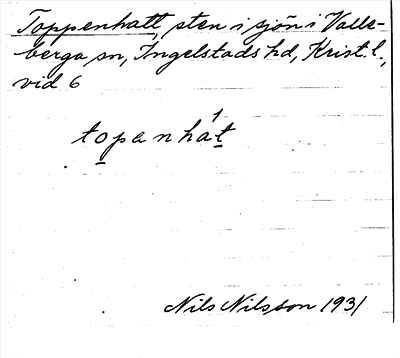 Toppenhatt, sten i sjön i Valle-
berga sn, Ingelstads hd, Krist. l.,
vid 6
topanhat
Nils Nilsson 1931